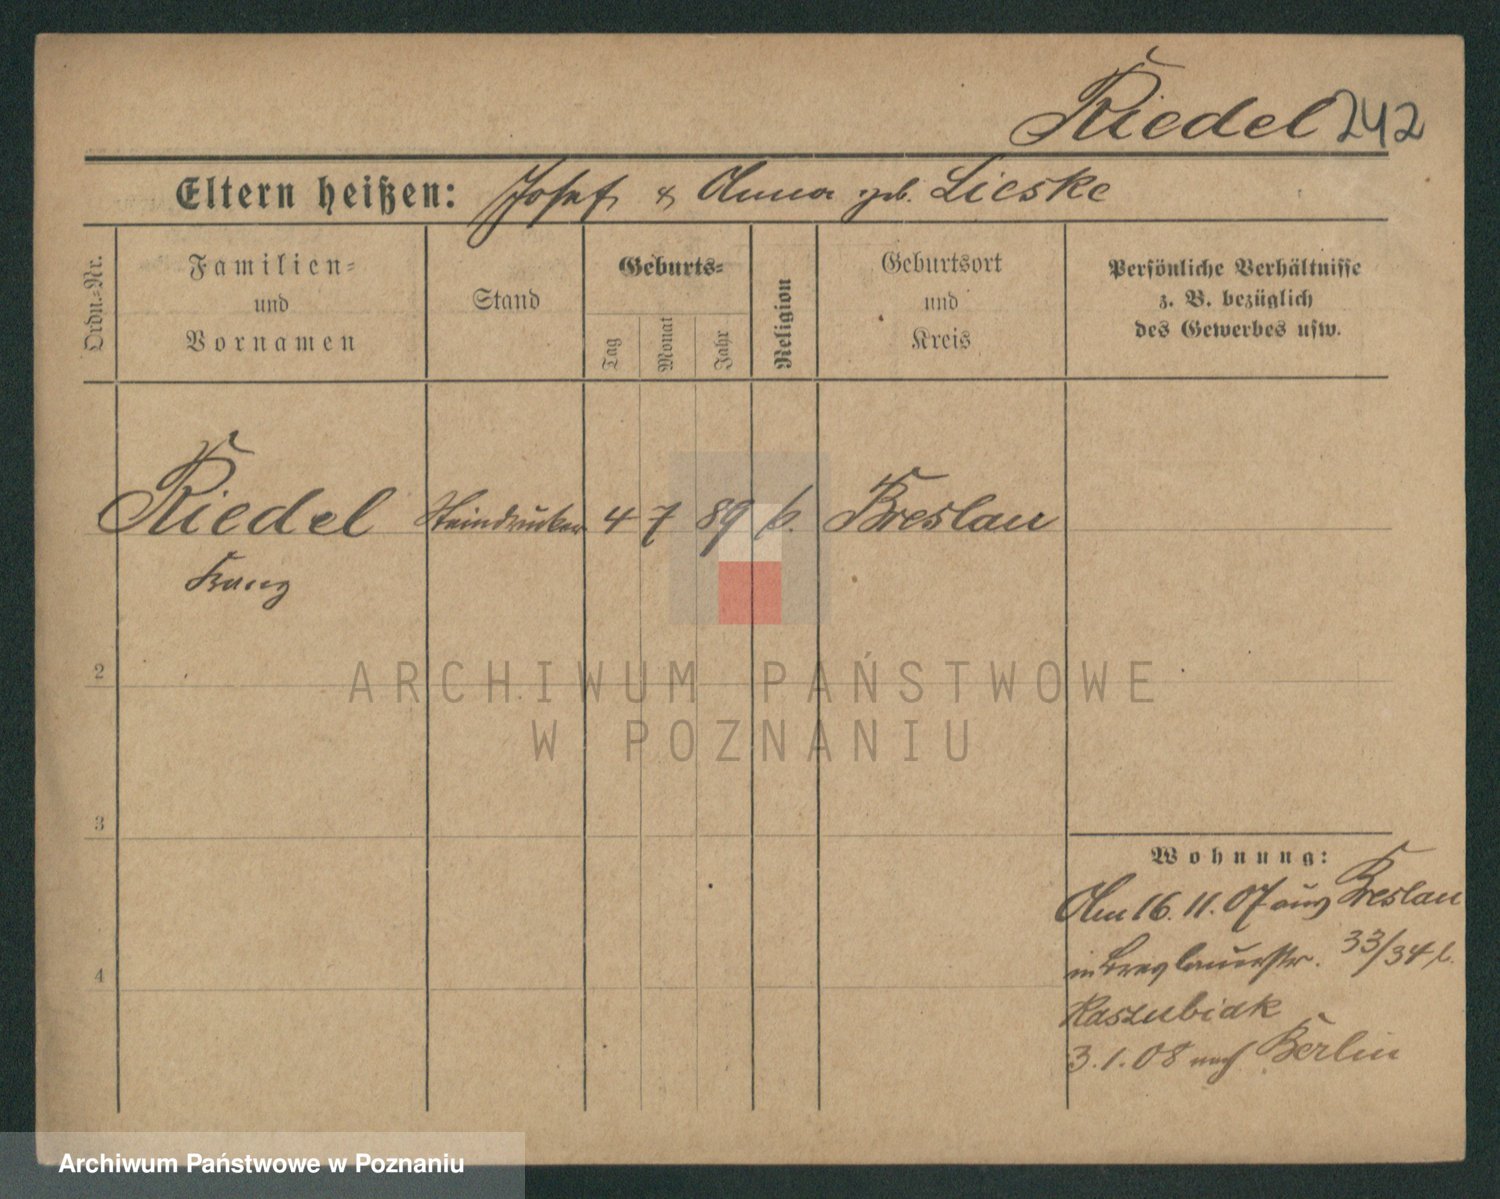 Riedel 242
Eltern heißen: Josef & Anna geb. Lieske
Ordn.-Nr.
Familien-
und
Vornamen
Stand
Geburts-
Tag
Monat
Jahr
Religion
Geburtsort
und
Kreis
Persönliche Verhältnisse
z. B. bezüglich
des Gewerbes usw.
Riedel Steindrucker 4 7 89 k. Breslau
Franz
2
3
4
Wohnung:
Am 16. 11. 07 aus Breslau
in Breslauerstr. 33/34 b.
Kaszubiak
3.1.08 nach Berlin
ARCHIWUM PAŃSTWOWE
W POZNANIU
Archiwum Państwowe w Poznaniu